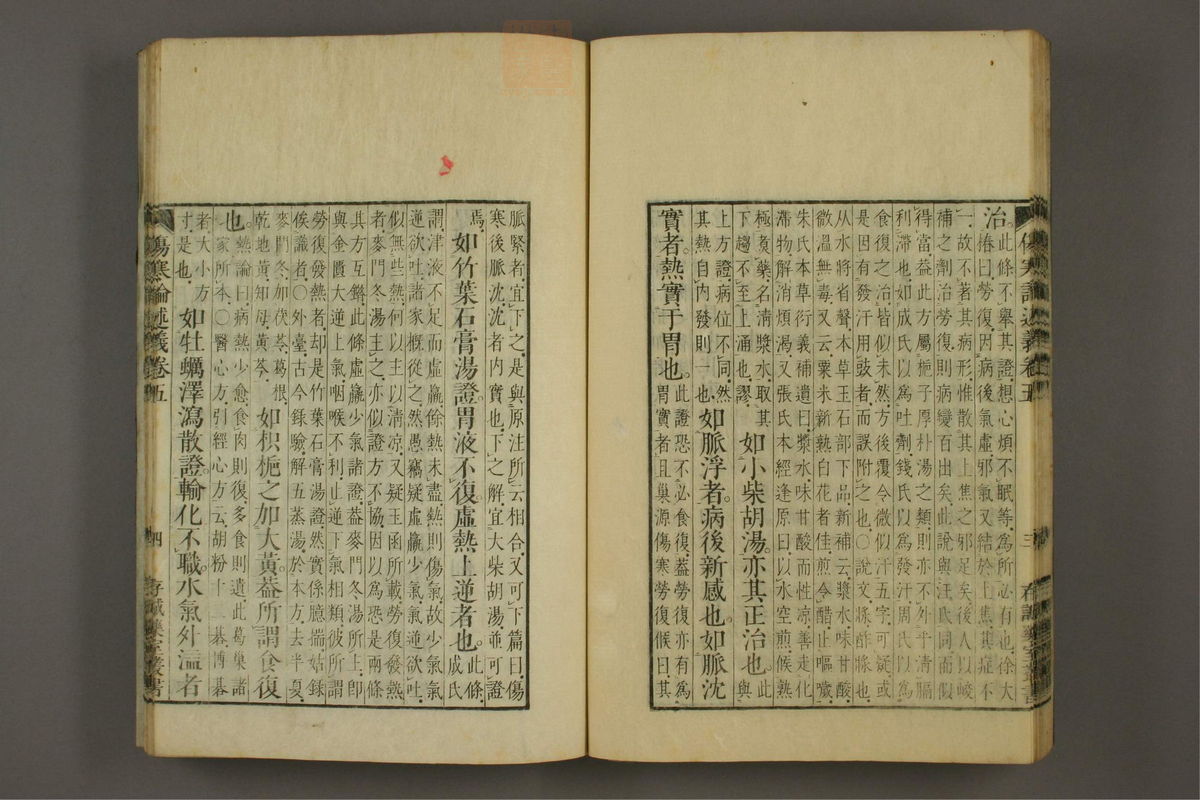 傷寒論述義卷五　三　存誠藥室叢書
治。此條不舉其證.想心煩不眠等.為所必有也.徐大
椿曰.勞復.因病後氣虛.邪氣又結於上焦.其症不
一.故不著其病形.惟散其上焦之邪足矣.後人以峻
補之劑治勞復.則病變百出矣.此說與汪氏同.而似
得當.蓋此方屬梔子厚朴湯之類.則亦不外乎清膈
利滯也.如成氏以為吐劑.錢氏以為發汗.周氏以為
食復之治.皆似未然.方後覆令微似汗五字.可疑.或
是因有發汗用豉者.而誤附之也.○說文.漿.酢漿也.
從水將省聲.本草玉石部下品新補云.漿水味甘酸.
微溫無毒.又云.粟米新熟白花者佳.煎令醋.止嘔噦.
朱氏本草衍義補遺曰.漿水.味甘酸而性凉.善走化
滯物.解消煩渴.又張氏本經逢原曰.以水空煎.候熟
極煎藥.名清漿水.取其
下趨不至上涌也.謬.
如小柴胡湯.亦其正治也。
此
與
上方證.病位不同.然
其熱自內發則一也.
如脈浮者。病後新感也。如脈沈
實者。熱實于胃也。
此證恐不必食復.蓋勞復亦有為
胃實者.且巢源傷寒勞復候曰.其
脈緊者.宜下之.是與原注所云相合.又可下篇曰.傷
寒後脈沈沈者.內實也.下之解.宜大柴胡湯.並可證
焉.
如竹葉石膏湯證。胃液不復。虛熱上逆者也。
此條.
成氏
謂.津液不足而虛羸.餘熱未盡.熱則傷氣.故少氣氣
逆欲吐.諸家概從之.然愚竊疑虛羸少氣.氣逆欲吐.
似無些熱.何以主以清凉.又疑玉函所載勞復發熱
者.麥門冬湯主之.亦似證方不協.因以為恐是兩條
其方互錯.此條虛羸少氣諸證.蓋麥門冬湯所主.即
與金匱大逆上氣.咽喉不利.止逆下氣相類.彼所謂
勞復發熱者.却是竹葉石膏湯證.然實係臆揣.姑錄
俟識者.○外臺.古今錄驗.解五蒸湯.於本方.去半夏.
麥門冬.加茯苓.葛根.
乾地黃.知母.黃芩.
如枳梔之加大黃。蓋所謂食復
也。
熱論曰.病熱少愈.食肉則復.多食則遺.此葛巢諸
家所本.○醫心方.引經心方云.胡粉十二棊.博棊
者.大小方
寸是也.
如牡蠣澤瀉散證。輸化不職。水氣外溢者
傷寒論述義卷五　四　存誠藥室叢書